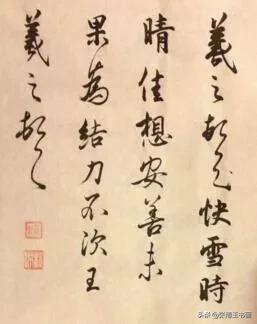 羲之頓首快雪時
晴佳想安善未
果為結力不次王
羲之頓首
头条